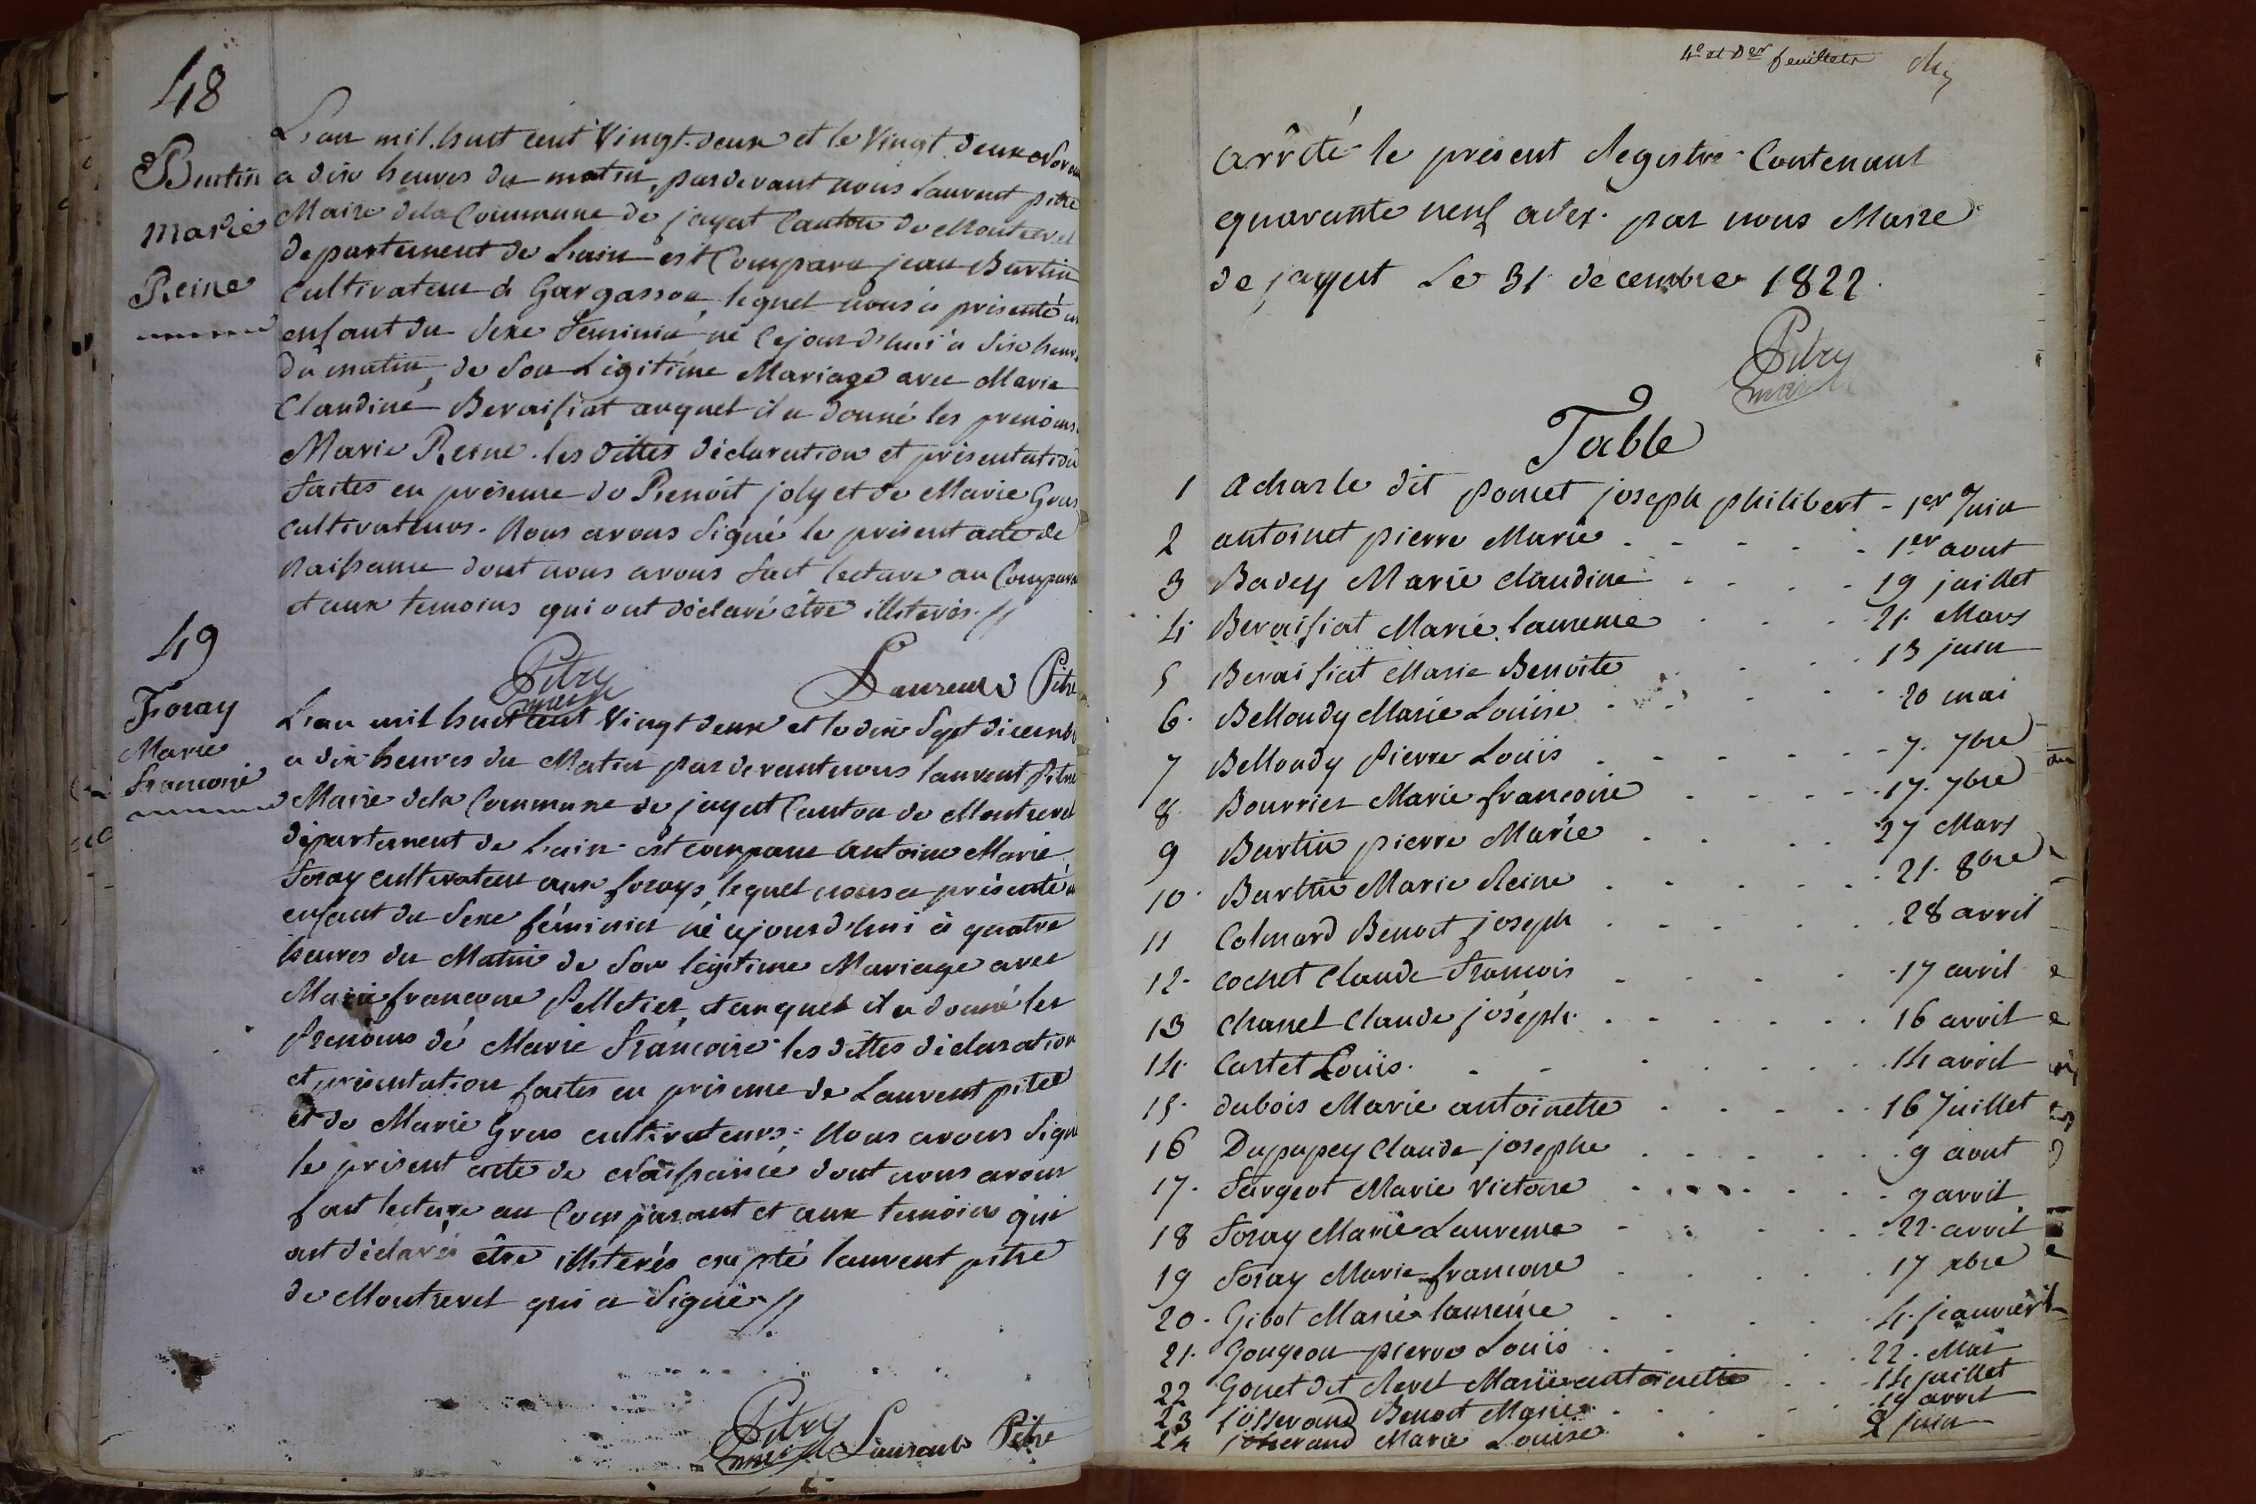 48
Burtin
Marie
Reine
L'an mil huit cent vingt deux et le vingt deux
a dix heures du matin, pardevant nous Laurent pitre
Maire dela Commune de jayat Canton de Montrevel
departement de L'ain est Comparu jean Burtin
Cultivateur à Gargasson, lequel nous a présenté un
enfant du Sexe Feminin né Cejourd'hui à dix heures
du matin, de Son Légitime Mariage avec Marie
Claudine Beraifiat auquel il a donné les prenoms
Marie Reine. les dittes déclaration et présentation
faites en présence de Benoit joly et de Marie Gras
cultivateurs. Nous avons Signé le présent acte de
Naissance dont nous avons fait lecture au Compara
et aux temoins qui ont déclaré être illiterés. //
Pitre
maire
Laurent Pitre
49
Foray
Marie
Françoise
L'an mil huit cent Vingt deux et le dix Sept décemb
a dix heures du Matin pardevant nous laurent Pitre
Maire dela Commune de jayat Canton de Montrevel
département de L'ain est comparu antoine Marie
Foray cultivateur aux forays, lequel nous a présenté un
enfant du Sexe féminin né cejourd'hui à quatre
heures du Matin de Son légitime Mariage avec
Marie françoise Pelletier, et auquel il a donné les
Prenoms de Marie Françoise les dittes déclaration
et présentation faites en présence de Laurent pitre
et de Marie Gras cultivateurs: Nous avons Signé
le présent acte de Naissance dont nous avons
fait lecture au Comparant et aux temoins qui
ont déclarés être illiterés excepté laurent pitre
de Montrevel qui a Signé //
Pitre
maire
Laurent Pitre
4e et Der feuillets
arrêté le présent Registre Contenant
quarante neuf actes. par nous Maire
de jayat Le 31 décembre 1822.
Pitre
maire
Table
1 acharle dit pomet joseph philibert - 1er Juin
2 antoinet pierre Marie - 1er aout
3 Badey Marie claudine - 19 juillet
4 Beraifiat Marie laurence - 21 Mars
5 Beraifiat Marie Benoite - 13 juin
6 Belloudy Marie Louise - 20 mai
7 Belloudy Pierre Louis - 7. 7bre
8 Bourrier Marie françoise - 17. 7bre
9 Burtin pierre Marie - 27 Mars
10 Burtin Marie Reine - 21. 8bre
11 Colmard Benoit joseph - 28 avril
12 Cochet Claude François - 17 avril
13 Chanel Claude joséph - 16 avril
14 Cartet Louis - 14 avril
15 dubois Marie antoinette - 16 Juillet
16 Dupupey Claude josephe - 9 aout
17 Fargeot Marie Victoire - 9 avril
18 Foray Marie Laurence - 22 avril
19 Foray Marie françoise - 17 xbre
20 Gibot Marie laurence - 4 jeanvier
21 Gougeon pierre Louis - 22. Mai
22 Gonet dit clerel Marie antoinette - 14 juillet
23 josserand Benoit Marie - 19 avril
24 josserand Marie Louise - 2 juin